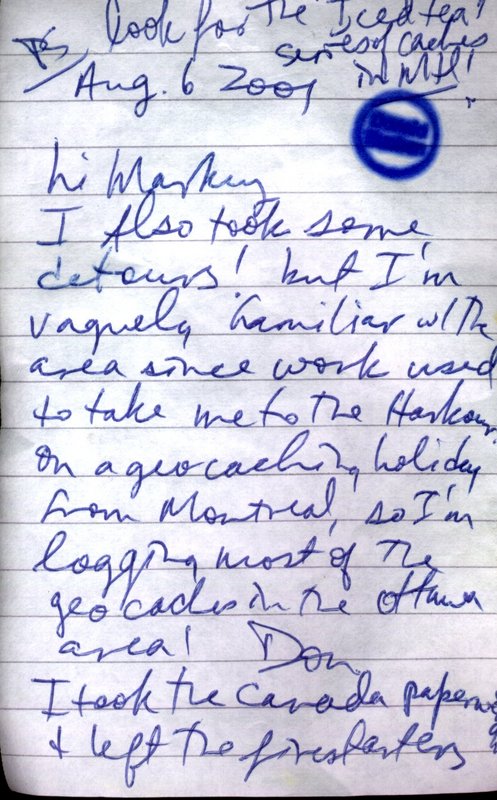 PS look for the "Iced tea"
series of caches
in Mtl!
Aug. 6 2001
hi
I Also took some
detours! but I'm
vaguely familiar w/the
area since work used
to take me to the Harbour.
On a geocaching holiday
from Montreal, so I'm
logging most of the
geocaches in the Ottawa
area! Don
I took the Canada
& left the firestarters